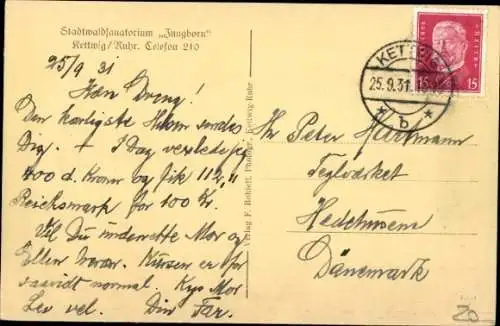 Stadtwaldsanatorium „Jungborn"
Kettwig/Ruhr. Telefon 210
25/9 31
Kære Dreng!
Den kærligste Hilsen sendes
Dig. + I Dag vexlede jeg
400 d. Kroner og fik 112,11
Reichsmark for 100 Kr.
Vil Du underrette Mor og
Ellen Kursen er for
saavidt normal. Kys Mor
Lev vel. Din Far.
Verlag F. Photogr. Kettwig-Ruhr
KETTWIG
25.9.31
b
15 15
Hr Peter Hartmann
Teglværket
Hedehusene
Dänemark
Zo